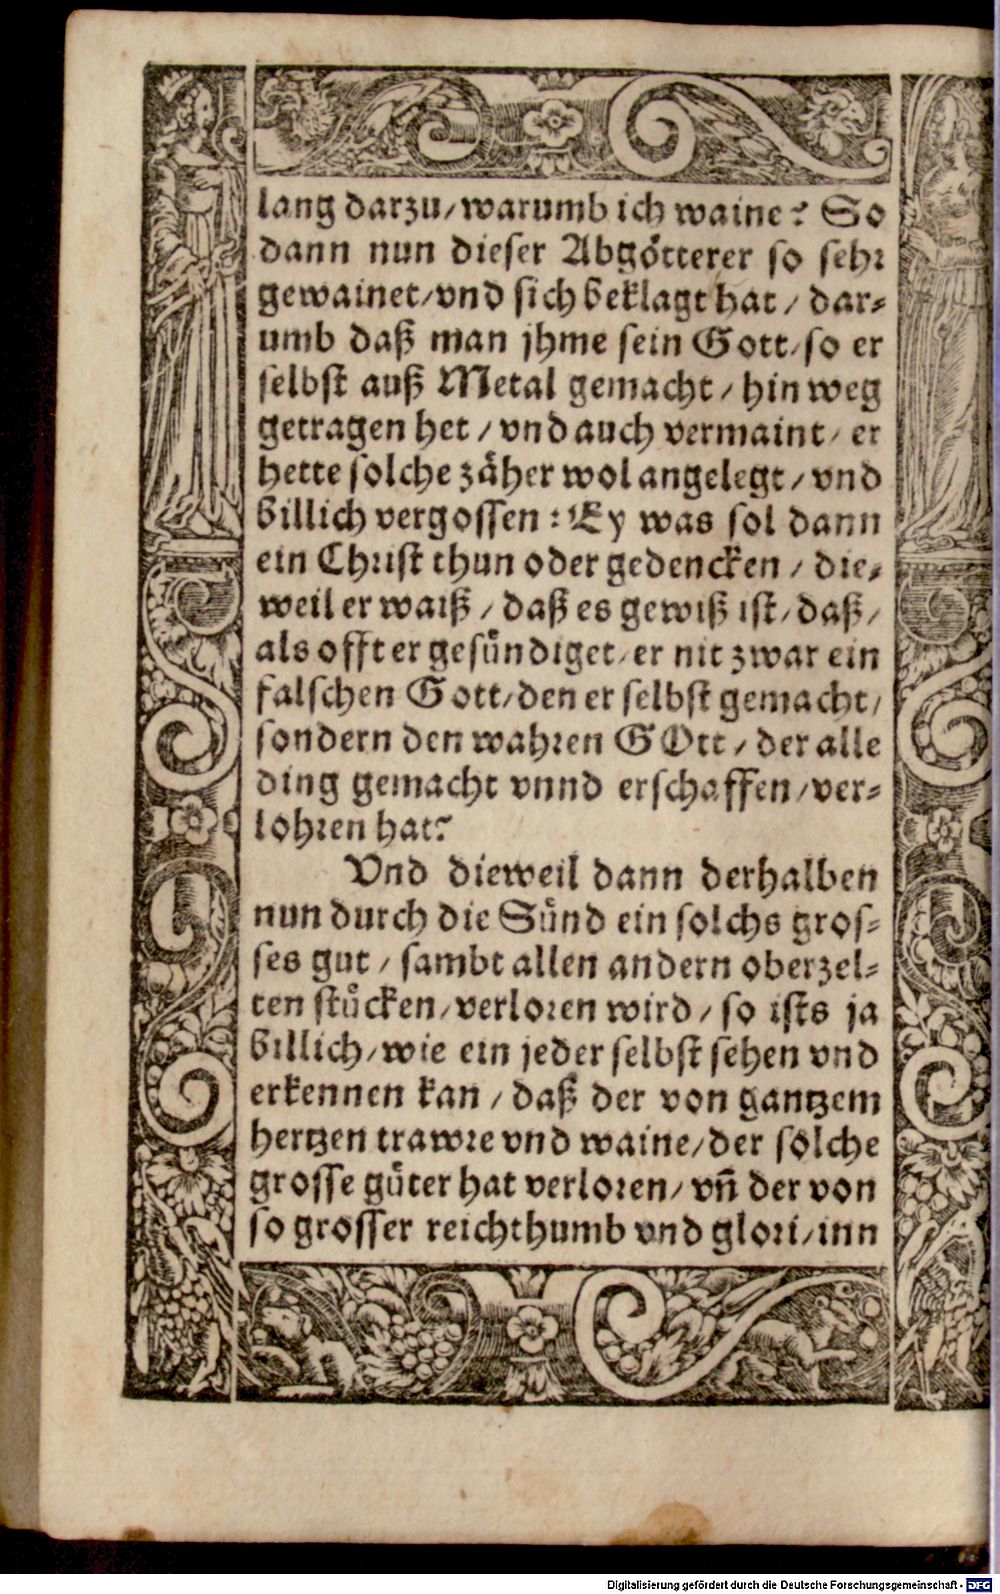 lang darzu/ warumb ich waine? So
dann nun dieser Abgötterer so sehr
gewainet/ vnd sich beklagt hat / dar-
umb daß man jhme sein Gott/ so er
selbst auß Metal gemacht / hin weg
getragen het / vnd auch vermaint/ er
hette solche zäher wol angelegt / vnd
billich vergossen: Ey was sol dann
ein Christ thun oder gedencken / die-
weil er waiß / daß es gewiß ist/ daß/
als offt er gesündiget/ er nit zwar ein
falschen Gott/ den er selbst gemacht/
sondern den wahren GOtt / der alle
ding gemacht vnnd erschaffen/ ver-
lohren hat?
Vnd dieweil dann derhalben
nun durch die Sünd ein solchs gros-
ses gut / sambt allen andern oberzel-
ten stücken/ verloren wird / so ists ja
billich/ wie ein jeder selbst sehen vnd
erkennen kan / daß der von gantzem
hertzen trawre vnd waine/ der solche
grosse güter hat verloren/ vñ der von
so grosser reichthumb vnd glori/ inn
Digitalisierung gefördert durch die Deutsche Forschungsgemeinschaft - DFG